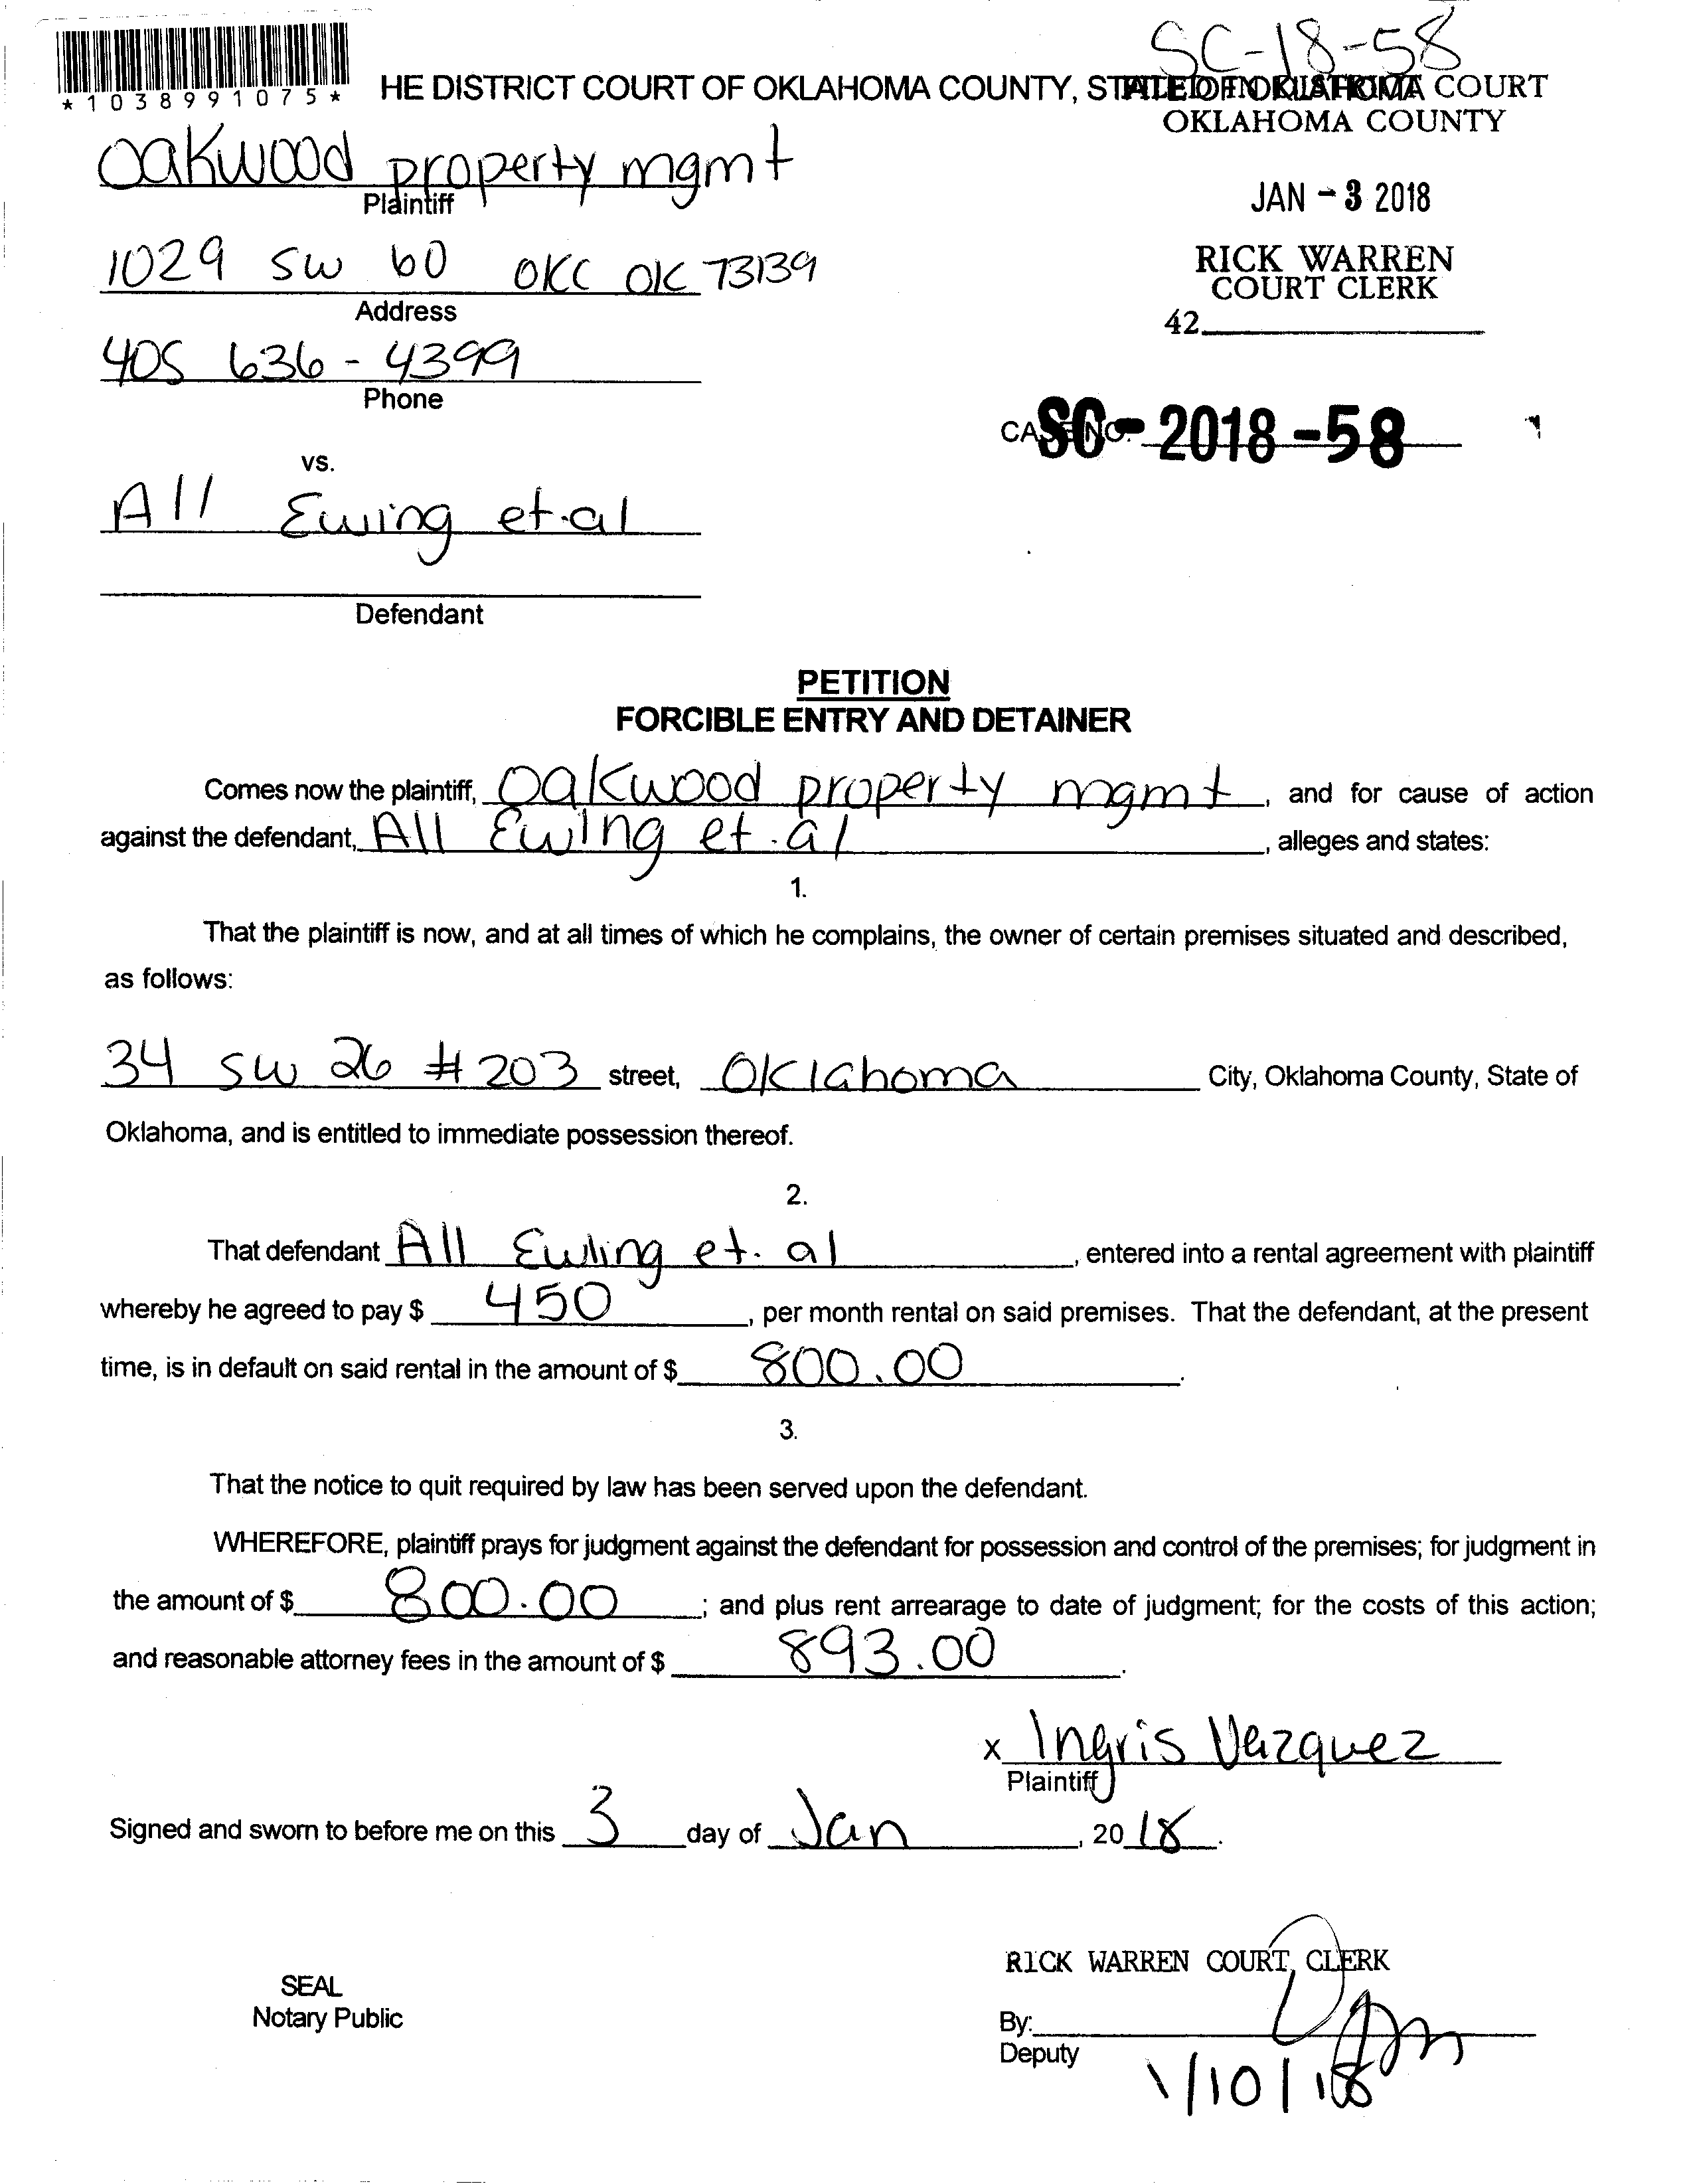 SC-18-58
*1038991075*
HE DISTRICT COURT OF OKLAHOMA COUNTY, STATE OF OKLAHOMA
FILED IN DISTRICT COURT
OKLAHOMA COUNTY
JAN - 3 2018
RICK WARREN
COURT CLERK
42
Oakwood property mgmt
Plaintiff
1029 SW 60 OKC OK 73139
Address
405 636-4399
Phone
CASE NO.
SC-2018-58
vs.
All Ewing et.al
Defendant
PETITION
FORCIBLE ENTRY AND DETAINER
Comes now the plaintiff, Oakwood property mgmt, and for cause of action
against the defendant, All Ewing et.al, alleges and states:
1.
That the plaintiff is now, and at all times of which he complains, the owner of certain premises situated and described,
as follows:
34 SW 26 #203 street, Oklahoma City, Oklahoma County, State of
Oklahoma, and is entitled to immediate possession thereof.
2.
That defendant All Ewing et. al, entered into a rental agreement with plaintiff
whereby he agreed to pay $ 450, per month rental on said premises. That the defendant, at the present
time, is in default on said rental in the amount of $ 800.00.
3.
That the notice to quit required by law has been served upon the defendant.
WHEREFORE, plaintiff prays for judgment against the defendant for possession and control of the premises; for judgment in
the amount of $ 800.00; and plus rent arrearage to date of judgment; for the costs of this action;
and reasonable attorney fees in the amount of $ 893.00.
x Ingris Vazquez
Plaintiff
Signed and sworn to before me on this 3 day of Jan, 2018.
RICK WARREN COURT CLERK
SEAL
Notary Public
By:
Deputy
1/10/18